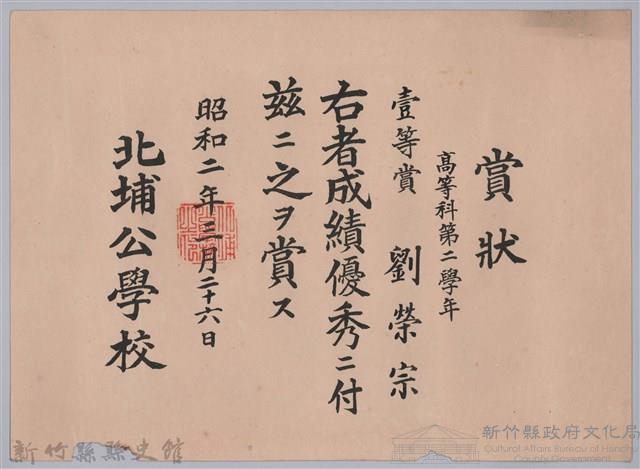 賞狀
高等科第二學年
壹等賞 劉榮宗
右者成績優秀ニ付
茲ニ之ヲ賞ス
昭和二年三月二十六日
北埔公學校
新竹縣縣史館
新竹縣政府文化局
Cultural Affairs Bureau of Hsinchu
County Government